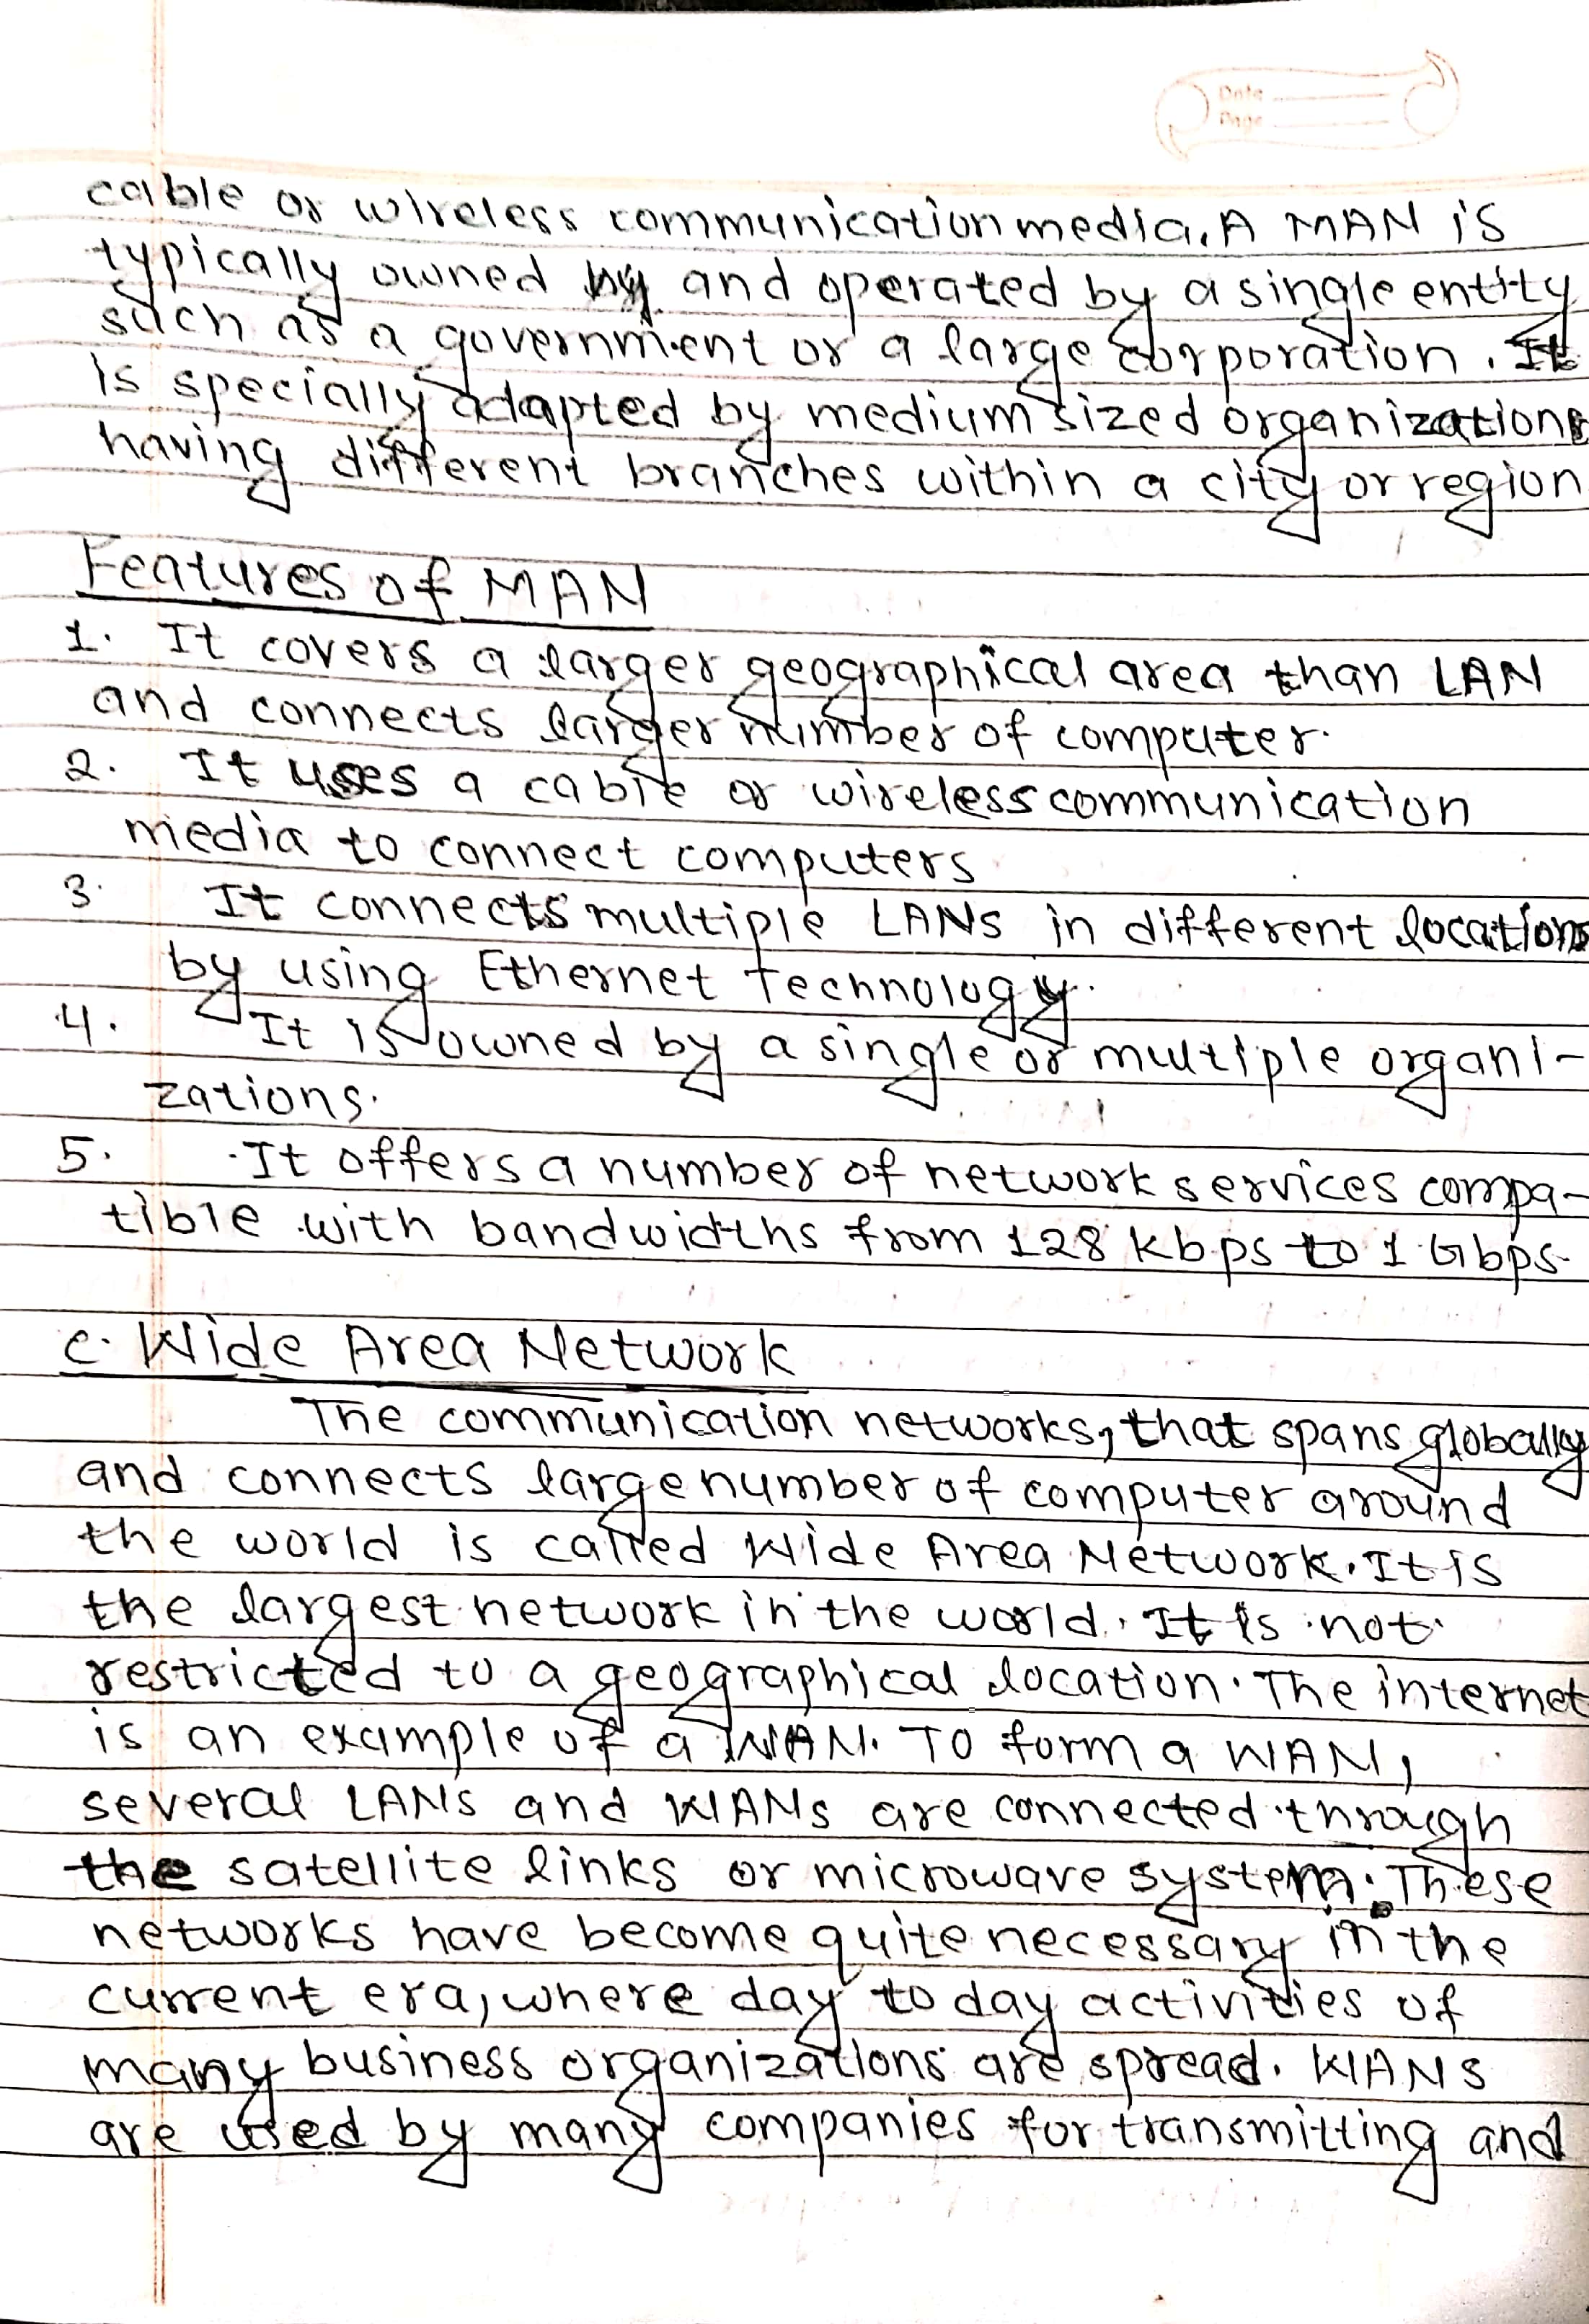 Date
Page
cable or wireless communication media. A MAN is
typically owned by and operated by a single entity
such as a government or a large corporation. It
is specially adapted by medium sized organizations
having different branches within a city or region
Features of MAN
1. It covers a larger geographical area than LAN
and connects larger number of computer.
2. It uses a cable or wireless communication
media to connect computers
3. It connects multiple LANs in different locations
by using Ethernet Technology.
4. It is owned by a single or multiple organi-
zations.
5. It offers a number of network services compa-
tible with bandwidths from 128 kbps to 1 Gbps.
c. Wide Area Network
The communication networks, that spans globally
and connects large number of computer around
the world is called Wide Area Network. It is
the largest network in the world. It is not
restricted to a geographical location. The internet
is an example of a WAN. To form a WAN,
several LANs and WANs are connected through
the satellite links or microwave system. These
networks have become quite necessary in the
current era, where day to day activities of
many business organizations are spread. WANs
are used by many companies for transmitting and